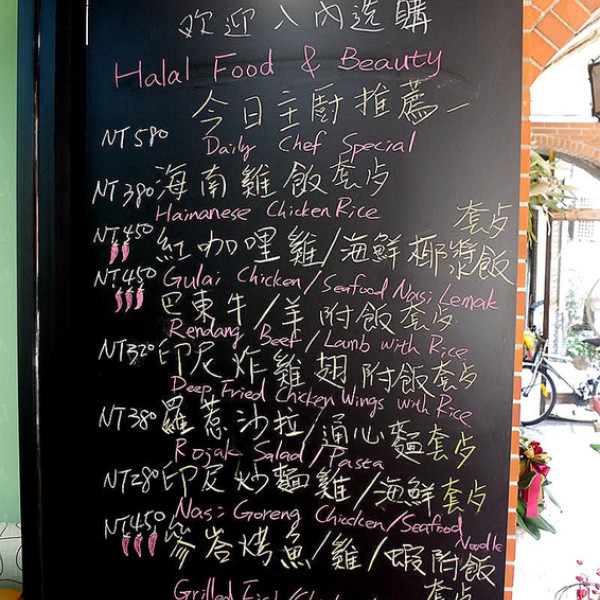 欢迎入內选購
Halal Food & Beauty
今日主廚推薦
NT580 Daily Chef Special
NT380 海南雞飯套歺
Hainanese Chicken Rice
套歺
NT450 紅咖哩雞/海鮮椰漿飯
Gulai Chicken/Seafood Nasi Lemak
NT450 巴東牛/羊附飯套歺
Rendang Beef/Lamb with Rice
NT320 印尼炸雞翅附飯套歺
Deep Fried Chicken Wings with Rice
NT380 羅惹沙拉/通心麵套歺
Rojak Salad/Pasta
NT280 印尼炒麵雞/海鮮套歺
Nasi Goreng Chicken/Seafood Noodle
NT450 參峇烤魚/雞/蝦附飯
套歺
Grilled